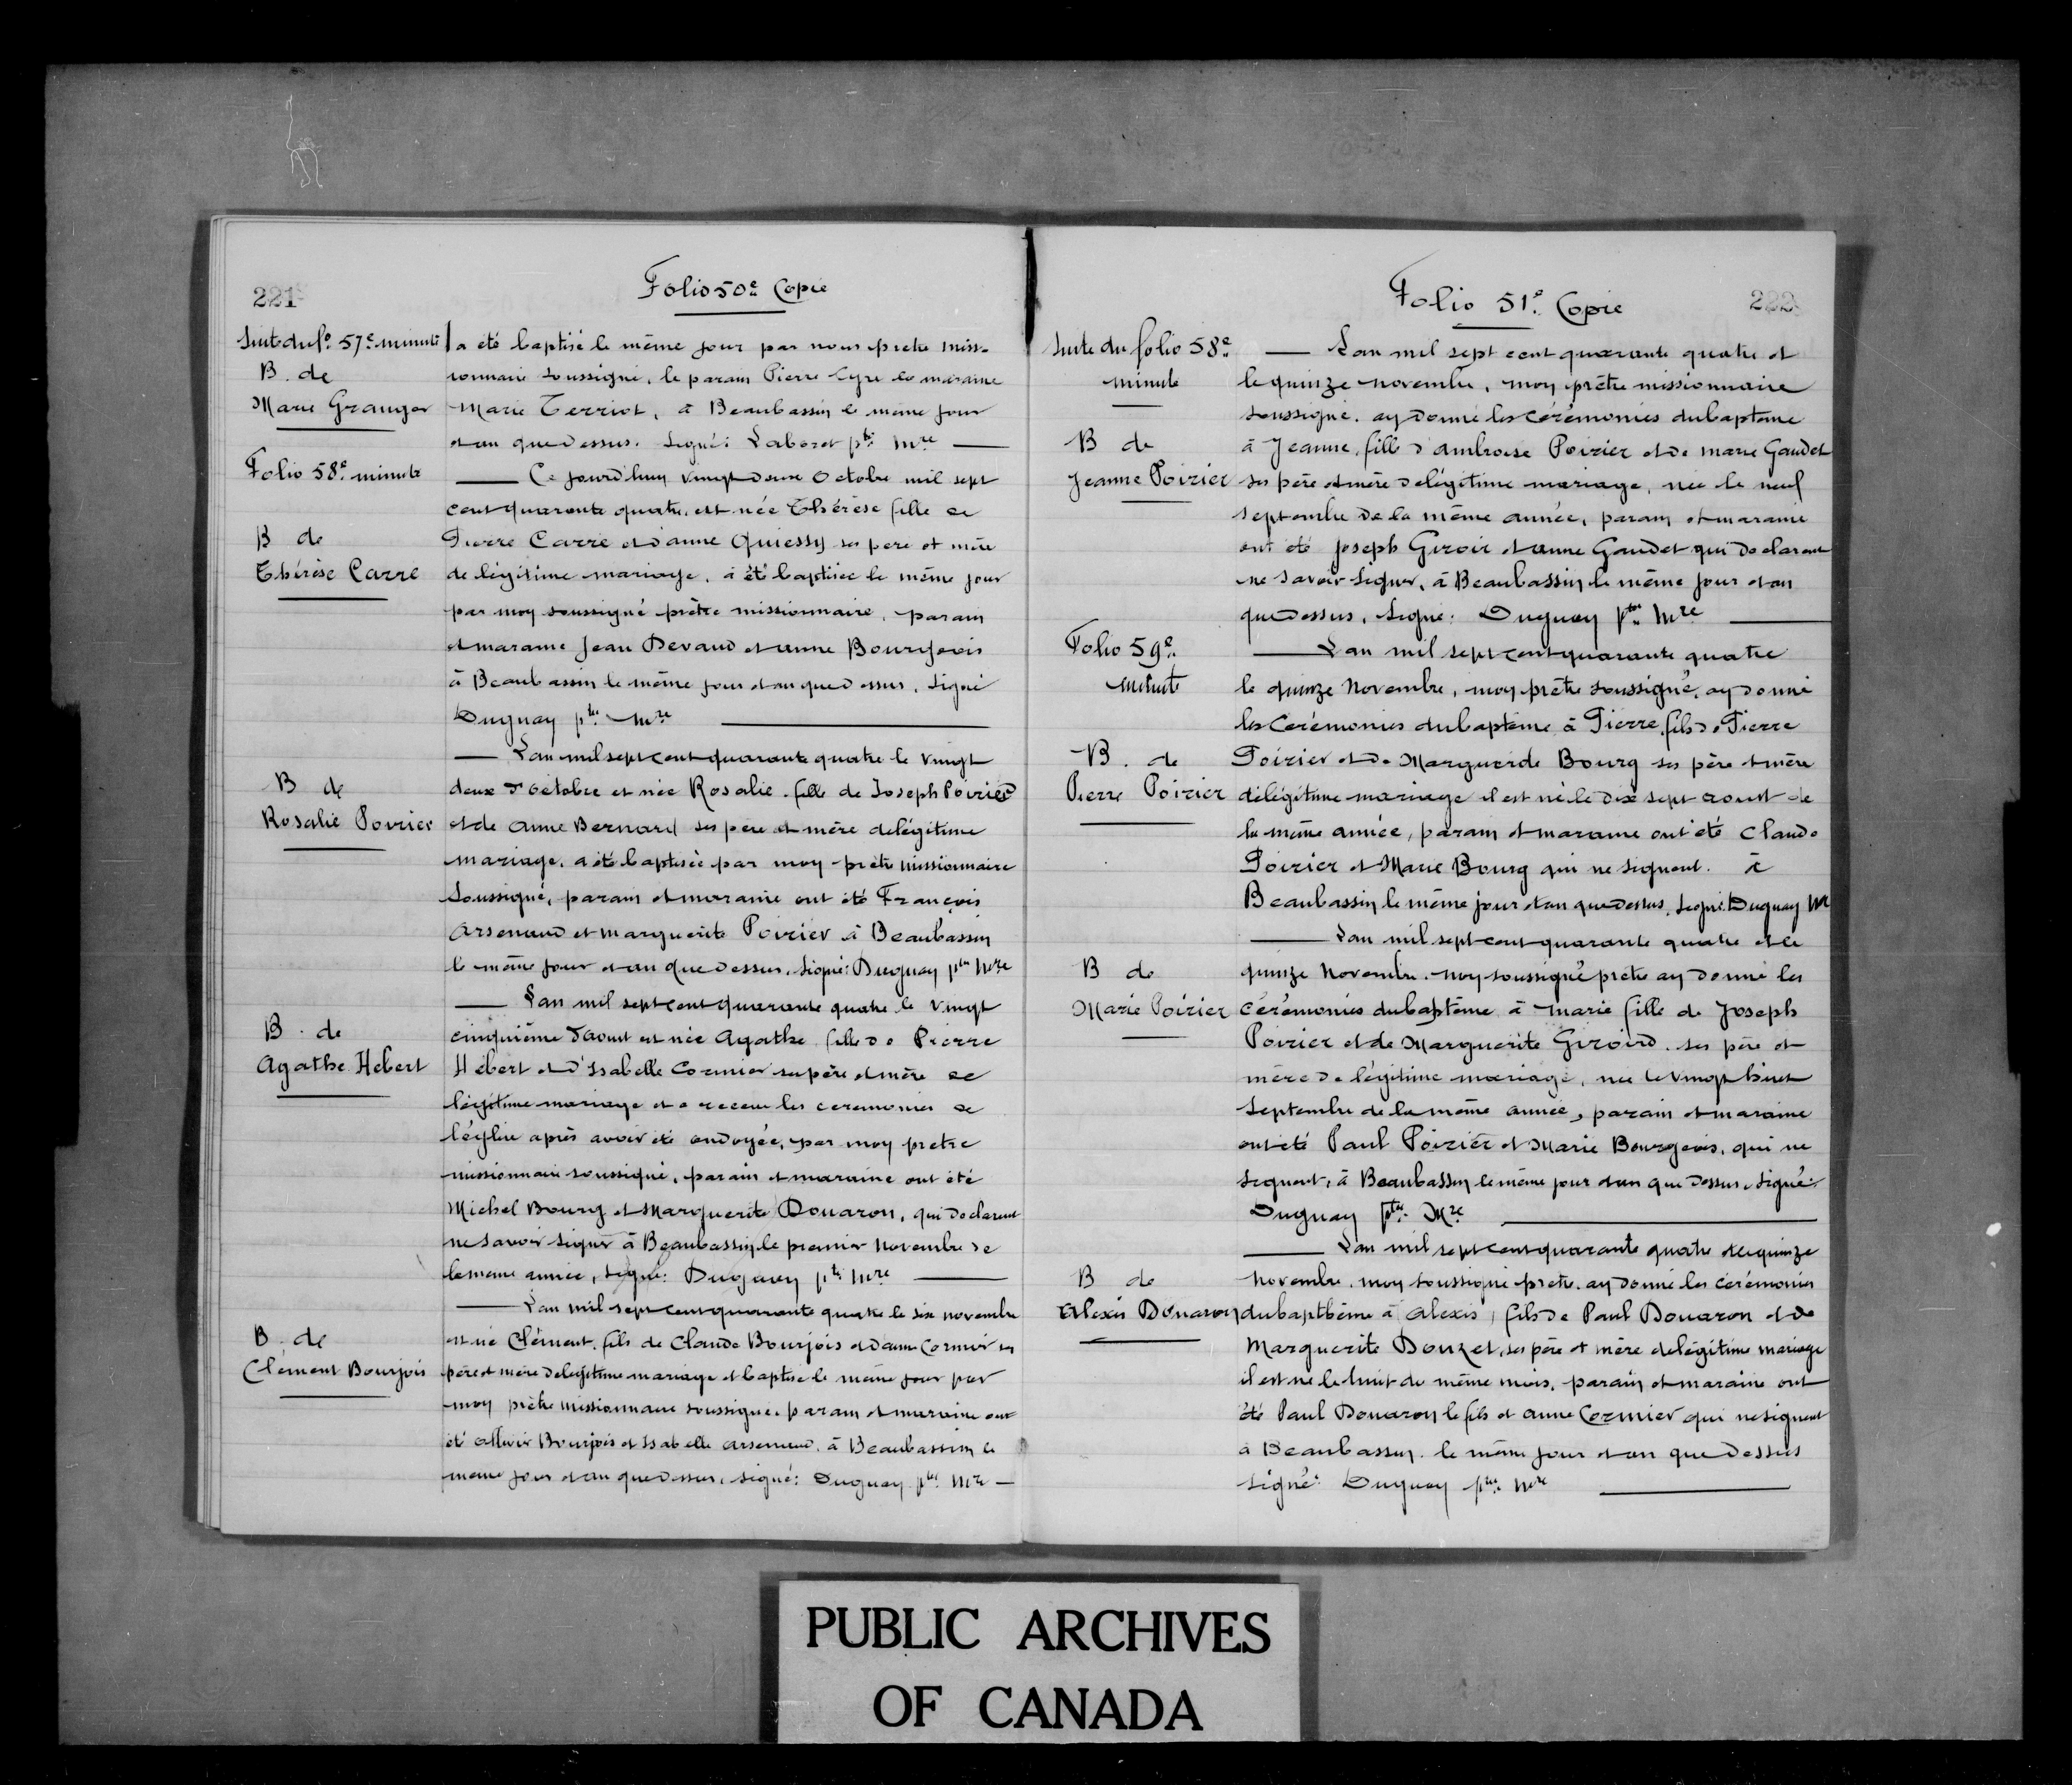 221
Folio 50e Copie
Suite du fo. 57e minute
a été baptisé le même jour par nous pretre miss-
B. de
ionnaire soussigné, le parain Pierre Cyre la maraine
Marie Granger
Marie Terriot, à Beaubassin le même jour
et an que dessus. Signé: Laboret ptre Mre
Folio 58e minute
Ce jourd'huy vingt deux Octobre mil sept
cent quarante quatre, est née Thérèse fille de
B de
Pierre Carré et d'anne Quiessy ses pere et mère
Thérèse Carré
de légitime mariage, a été baptisée le même jour
par moy soussigné prêtre missionnaire, parain
et maraine Jean Devaud et anne Bourgeois
à Beaubassin le même jour et an que dessus, Signé
Duguay ptre Mre
L'an mil sept cent quarante quatre le vingt
B de
deux d'octobre et née Rosalie fille de Joseph Poirier
Rosalie Poirier
et de Anne Bernard ses père et mère de légitime
mariage, a été baptisée par moy prêtre missionnaire
soussigné, parain et maraine ont été François
Arsenaud et marguerite Poirier à Beaubassin
le même jour et an que dessus, Signé: Duguay ptre Mre
L'an mil sept cent quarante quatre le vingt
B. de
cinquième d'aoust est née Agathe fille de Pierre
Agathe Hebert
Hébert et d'Isabelle Cormier ses père et mère de
légitime mariage et a receu les ceremonies de
l'église après avoir été ondoyée, par moy pretre
missionnaire soussigné, parain et maraine ont été
Michel Bourg et Marguerite Douaron, qui declarent
ne savoir signer à Beaubassin le premier Novembre de
la meme année, Signé: Duguay ptre Mre
L'an mil sept cent quarante quatre le six novembre
B. de
est né Clément fils de Claude Bourjois et d'anne Cormier ses
Clement Bourjois
père et mère de légitime mariage et baptisé le même jour par
moy prêtre missionnaire soussigné. parain et maraine ont
été Ollivir Bourjois et Isabelle arsenaud, à Beaubassin le
meme jour et an que dessus, signé: Duguay ptre Mre
222
Folio 51e Copie
Suite du folio 58e
L'an mil sept cent quarante quatre et
minute
le quinze novembre, moy prêtre missionnaire
soussigné. ay donné les cérémonies du baptême
B de
à Jeanne, fille d'ambroise Poirier et de marie Gaudet
Jeanne Poirier
ses père et mère de légitime mariage, née le neuf
septembre de la même année, parain et maraine
ont été Joseph Giroir et anne Gaudet qui declarent
ne savoir signer, à Beaubassin le même jour et an
que dessus, Signé: Duguay ptre Mre
Folio 59e
L'an mil sept cent quarante quatre
minute
le quinze Novembre, moy prêtre soussigné, ay donné
les Cerémonies du baptême à Pierre, fils de Pierre
B. de
Poirier et de Margueride Bourg ses père et mère
Pierre Poirier
de légitime mariage il est né le dix sept aoust de
la même année, parain et maraine ont été Claude
Poirier et Marie Bourg qui ne signent. à
Beaubassin le même jour et an que dessus, signé. Duguay M
L'an mil sept cent quarante quatre et le
B de
quinze Novembre. Moy soussigné pretre ay donné les
Marie Poirier
cérémonies du baptême à Marie fille de Joseph
Poirier et de Marguerite Giroird. ses père et
mère de légitime mariage, née le vingt huict
septembre de la même année, parain et maraine
ont été Paul Poirier et Marie Bourgeois, qui ne
signent, à Beaubassin le même jour et an que dessus, signé:
Duguay ptre Mre
L'an mil sept cent quarante quatre et le quinze
B de
novembre, moy soussigné pretre, ay donné les cérémonies
Alexis Douaron
du bapthême à Alexis, fils de Paul Douaron et de
Marguerite Douzet, ses père et mère de légitime mariage
il est né le huit de même mois, parain et maraine ont
été Paul Douaron le fils et anne Cormier qui ne signent
à Beaubassin le même jour et an que dessus
signé: Duguay ptre Mre
PUBLIC ARCHIVES
OF CANADA